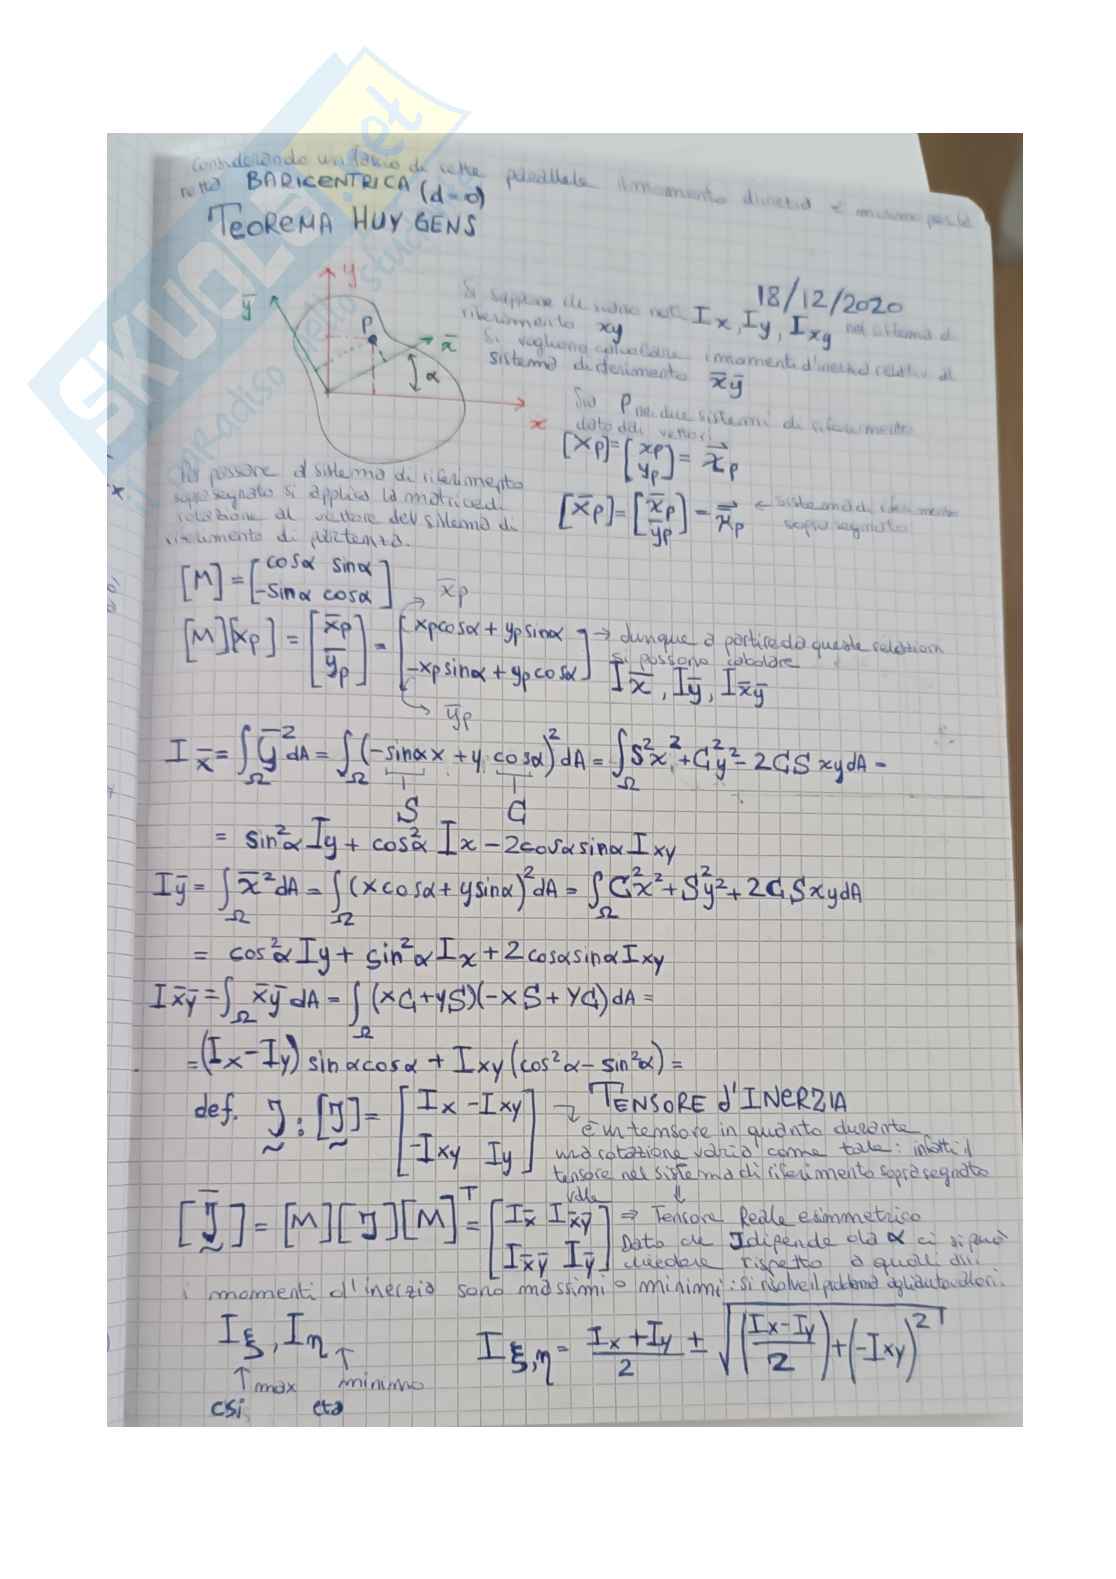 Considerando un fascio di rette parallele il momento d'inerzia è minimo per la
retta BARICENTRICA (d=0)
TEOREMA HUYGENS
18/12/2020
Si suppone di avere noti Ix, Iy, Ixy nel sistema di
riferimento xy
Si vogliono calcolare i momenti d'inerzia relativi al
sistema di riferimento x̄ȳ
y
ȳ
P
x̄
α
x
Sia P nei due sistemi di riferimento
dato dai vettori
[Xp]=[xp yp]= x⃗p
[X̄p]=[x̄p ȳp]= x̄⃗p ← sistema di riferimento
soprasegnato
Per passare al sistema di riferimento
soprasegnato si applica la matrice di
rotazione al vettore del sistema di
riferimento di partenza.
[M]=[cosα sinα
-sinα cosα]
→ x̄p
[M][Xp] = [x̄p ȳp] = [xpcosα + ypsinα → dunque a partire da queste relazioni
-xpsinα + ypcosα] si possono calcolare
Ix̄, Iȳ, Ix̄ȳ
→ ȳp
Ix̄ = ∫Ω ȳ²dA = ∫Ω (-sinα x + y cosα)² dA = ∫Ω S²x² + C²y² - 2CS xydA =
S C
= sin²α Iy + cos²α Ix - 2cosαsinα Ixy
Iȳ = ∫Ω x̄²dA = ∫Ω (xcosα + ysinα)²dA = ∫Ω C²x² + S²y² + 2CSxydA
= cos²α Iy + sin²α Ix + 2cosαsinα Ixy
Ix̄ȳ = ∫Ω x̄ȳ dA = ∫Ω (xC + yS)(-xS + yC)dA =
= (Ix - Iy) sinαcosα + Ixy (cos²α - sin²α) =
def. J : [J] = [Ix -Ixy → TENSORE d'INERZIA
-Ixy Iy]
è un tensore in quanto durante
una rotazione varia come tale: infatti il
tensore nel sistema di riferimento soprasegnato
vale ⇓
[J̄] = [M][J][M]ᵀ = [Ix̄ Ix̄ȳ ⇒ Tensore Reale e simmetrico
Ix̄ȳ Iȳ] Dato che J dipende da α ci si può
chiedere rispetto a quali assi
i momenti d'inerzia sono massimi o minimi: si risolve il problema agli autovalori.
Iξ, Iη
↑ max ↑ minimo
csi eta
Iξ,η = (Ix + Iy)/2 ± √((Ix - Iy)/2) + (-Ixy)²